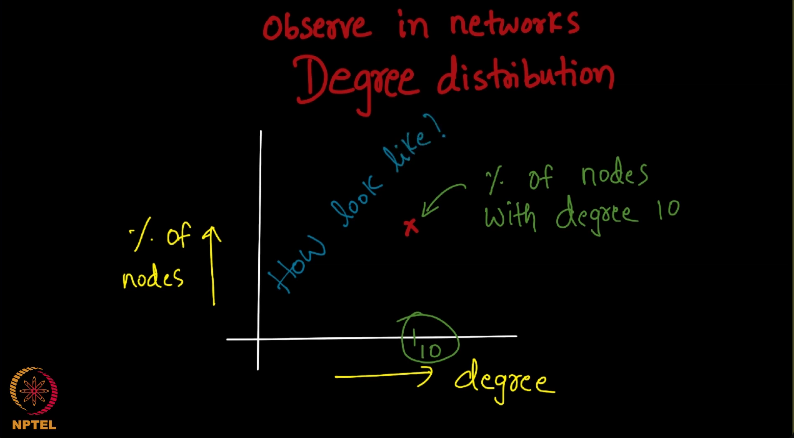 Observe in networks
Degree distribution
How look like?
% of nodes
with degree 10
% of
nodes
x
10
degree
NPTEL